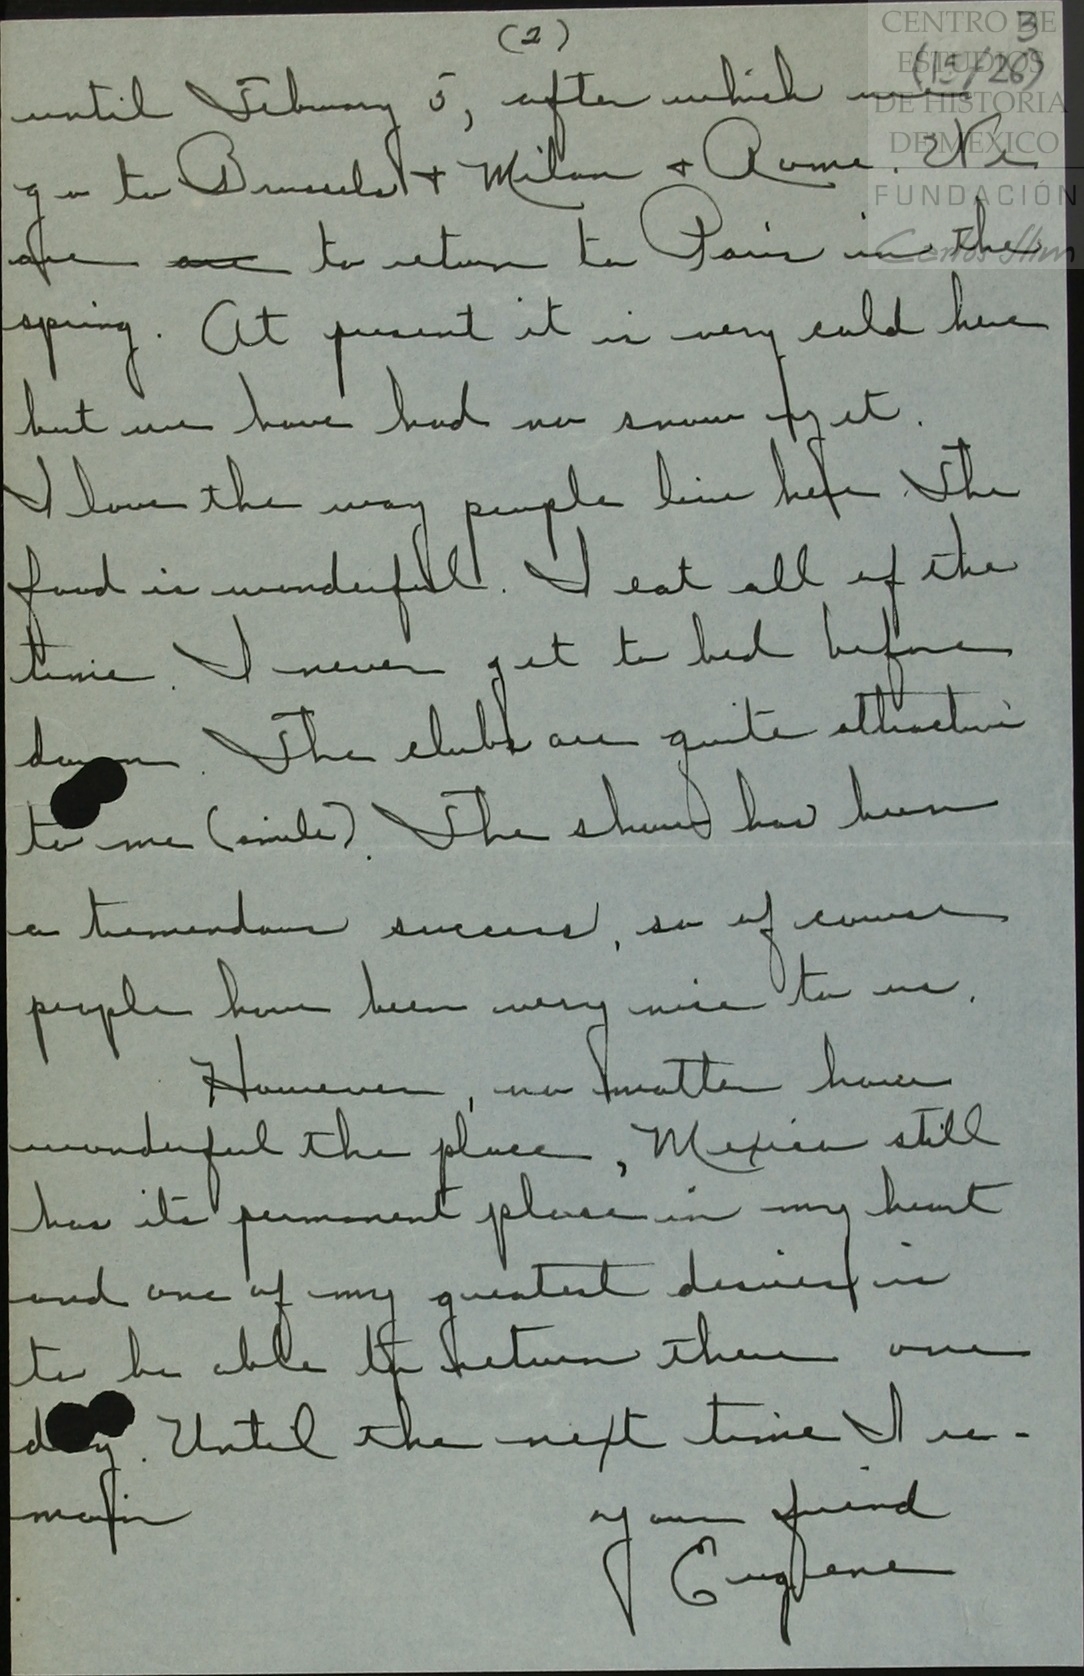 (2)
3
(15/26)
CENTRO DE
ESTUDIOS
DE HISTORIA
DE MÉXICO
FUNDACIÓN
Carlos Slim
until February 5, after which we
go to Brussels + Milan + Rome. We
are are to return to Paris in the
spring. At present it is very cold here
but we have had no snow yet.
I love the way people live here. The
food is wonderful. I eat all of the
time. I never get to bed before
dawn. The clubs are quite attractive
to me (smile). The show has been
a tremendous success, so of course
people have been very nice to us.
However, no matter how
wonderful the place, Mexico still
has its permanent place in my heart
and one of my greatest desires is
to be able to return there one
day. Until the next time I re-
main
your friend
Eugene